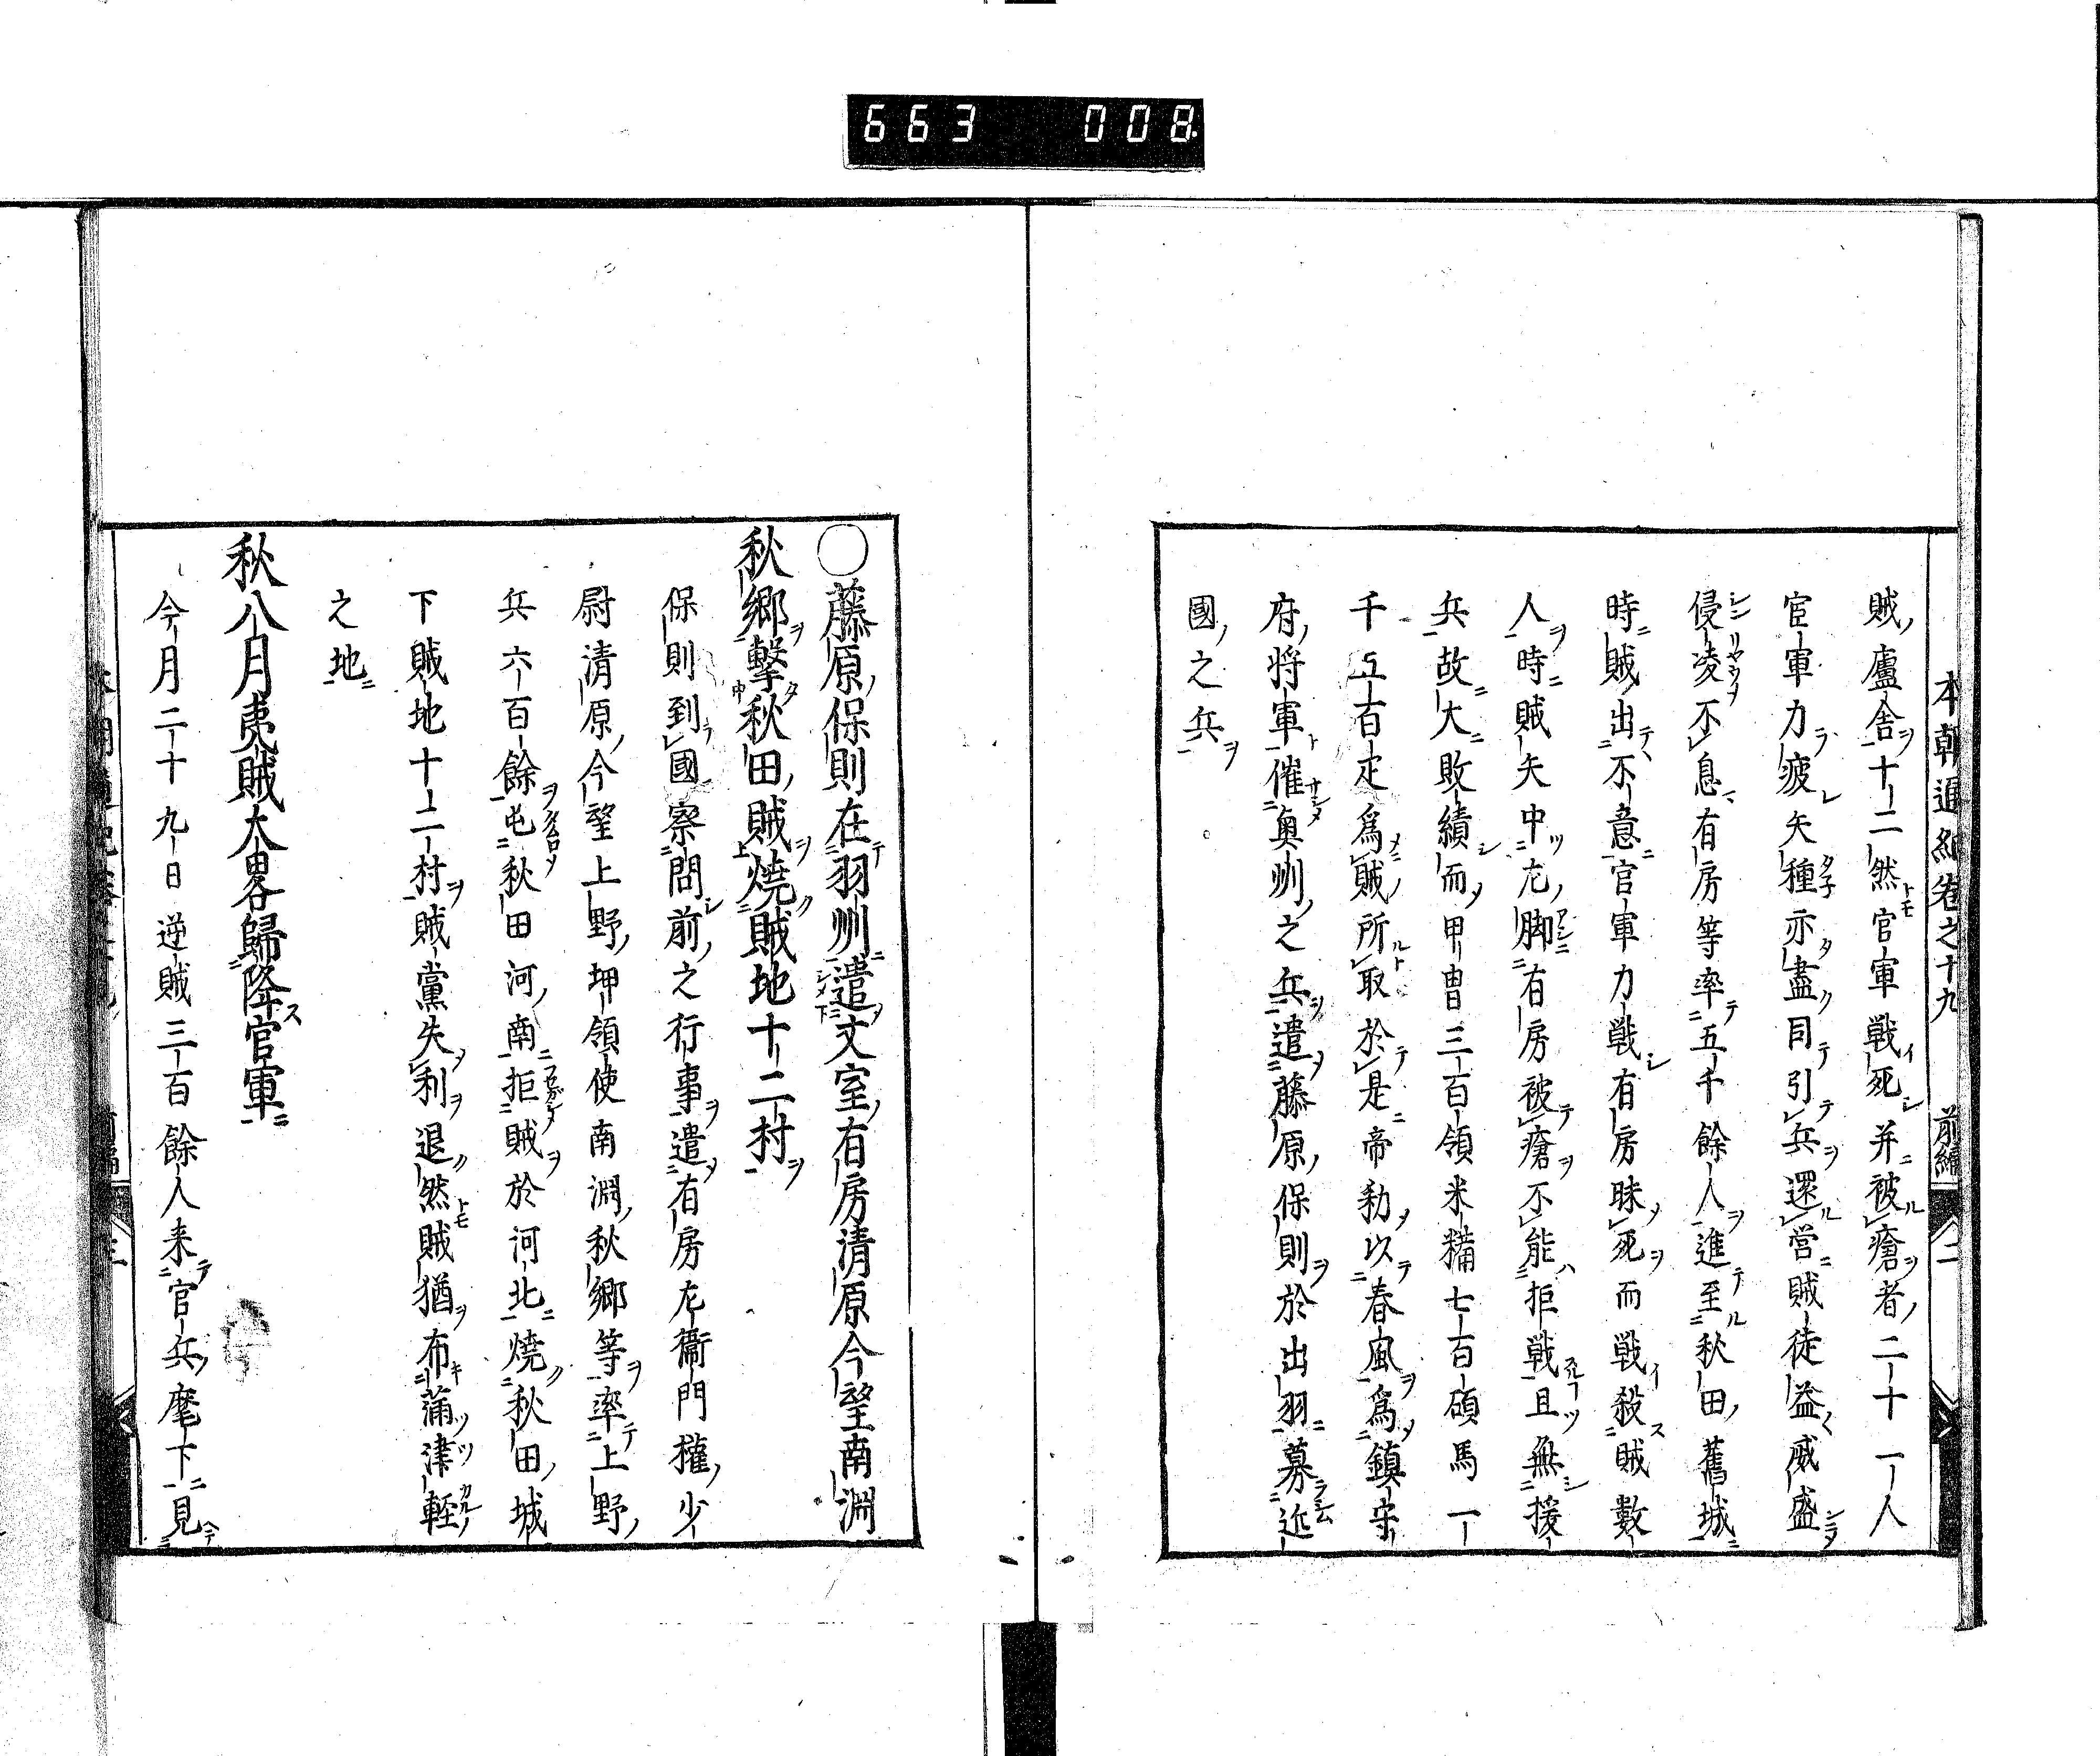 663 008
本朝通紀卷之十九 前編 二
賊盧舎十二然官軍戰死并被瘡者二十一人
官軍力疲矢種亦盡因引兵還営賊徒益威盛
侵凌不息有房等率五千餘人進至秋田舊城
時賊出不意官軍力戰有房昧死而戰殺賊數
人時賊矢中左脚有房被瘡不能拒戰且無援
兵故大敗績而甲冑三百領米糒七百碩馬一
千五百疋爲賊所取於是帝勅以春風爲鎮守
府将軍催奥州之兵遣藤原保則於出羽募近
國之兵
〇藤原保則在羽州遣文室有房清原今望南淵
秋郷撃秋田賊燒賊地十二村
保則到國察問前之行事遣有房左衞門權少
尉清原今望上野押領使南淵秋郷等率上野
兵六百餘屯秋田河南拒賊於河北燒秋田城
下賊地十二村賊黨失利退然賊猶布蒲津輕
之地
秋八月夷賊大畧歸降官軍
今月二十九日逆賊三百餘人来官兵麾下見